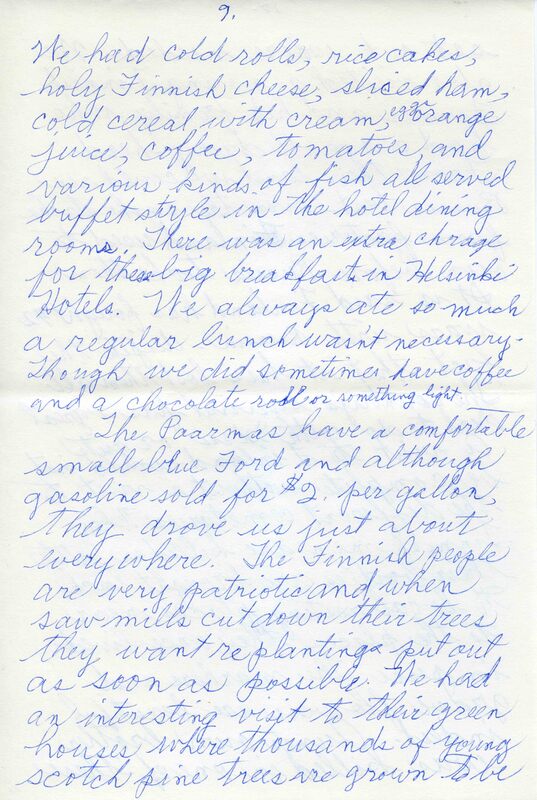 9.
We had cold rolls, rice cakes,
holy Finnish cheese, sliced ham,
cold cereal with cream, eggs orange
juice, coffee, tomatoes, and
various kinds of fish all served
buffet style in the hotel dining
rooms. There was an extra chrage
for these big breakfasts in Helsinki
Hotels. We always ate so much
a regular lunch wasn't necessary-
Though we did sometimes have coffee
and a chocolate roll or something light.
The Paarmas have a comfortable
small blue Ford and although
gasoline sold for $2. per gallon,
they drove us just about
everywhere. The Finnish people
are very patriotic and when
saw mills cut down their trees
they want replantings put out
as soon as possible. We had
an interesting visit to their green
houses where thousands of young
scotch pine trees are grown to be